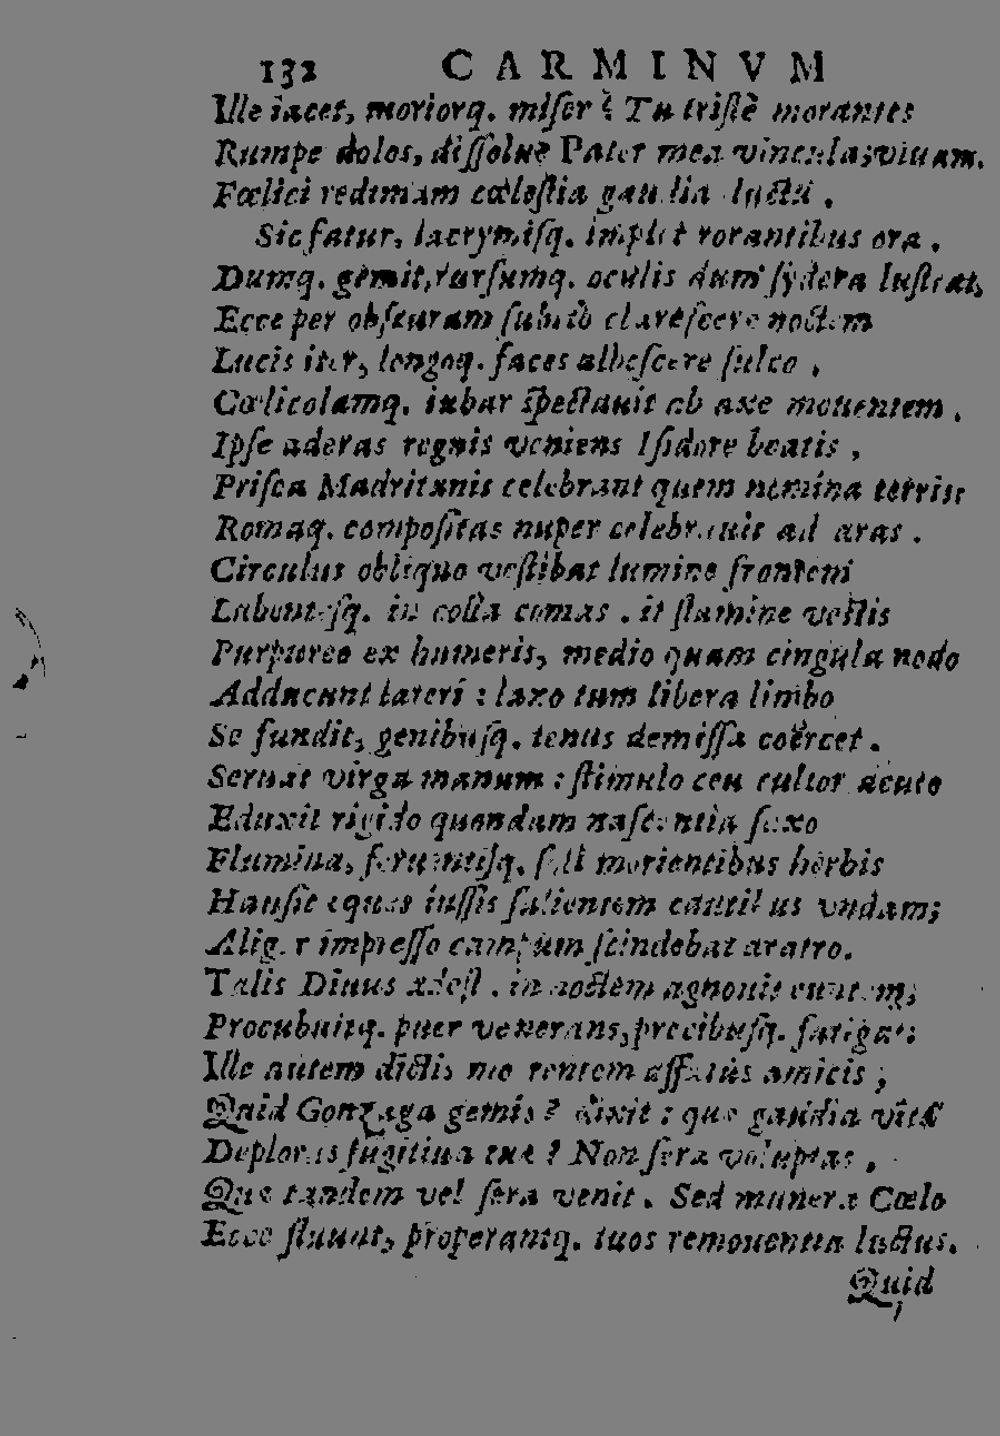 132 CARMINVM
Ille iacet, moriorq. miser? Tu tristè morantes
Rumpe dolos, dissolue Pater mea vincula; viuam.
Fœlici redimam cœlestia gaudia luctu.
Sic fatur, lacrymisq. implet rorantibus ora.
Dumq. gemit, rursumq. oculis dum sydera lustrat,
Ecce per obscuram subitò clarescere noctem
Lucis iter, longoq. faces albescere sulco,
Cœlicolamq. iubar spectauit ab axe mouentem.
Ipse aderas regnis veniens Isidore beatis,
Prisca Madritanis celebrant quem numina terris
Romaq. compositas nuper celebrauit ad aras.
Circulus obliquo vestibat lumine frontem
Labentesq. in colla comas. it stamine vestis
Purpureo ex humeris, medio quam cingula nodo
Adducunt lateri: laxo tum libera limbo
Se fundit, genibusq. tenus demissa coërcet.
Seruat virga manum: stimulo ceu cultor acuto
Eduxit rigido quondam nascentia saxo
Flumina, feruentisq. soli morientibus herbis
Hausit equus iussis salientem cautibus vndam;
Aliger impresso campum scindebat aratro.
Talis Diuus adest. in noctem agnouit euntem;
Procubuitq. puer venerans, precibusq. fatigat:
Ille autem dictis mœrentem affatus amicis;
Quid Gonzaga gemis? dixit: quæ gaudia vitæ
Deploras fugitiua tuæ? Non sera voluptas,
Quæ tandem vel sera venit. Sed munera Cœlo
Ecce fluunt, properantq. tuos remouentia luctus.
Quid